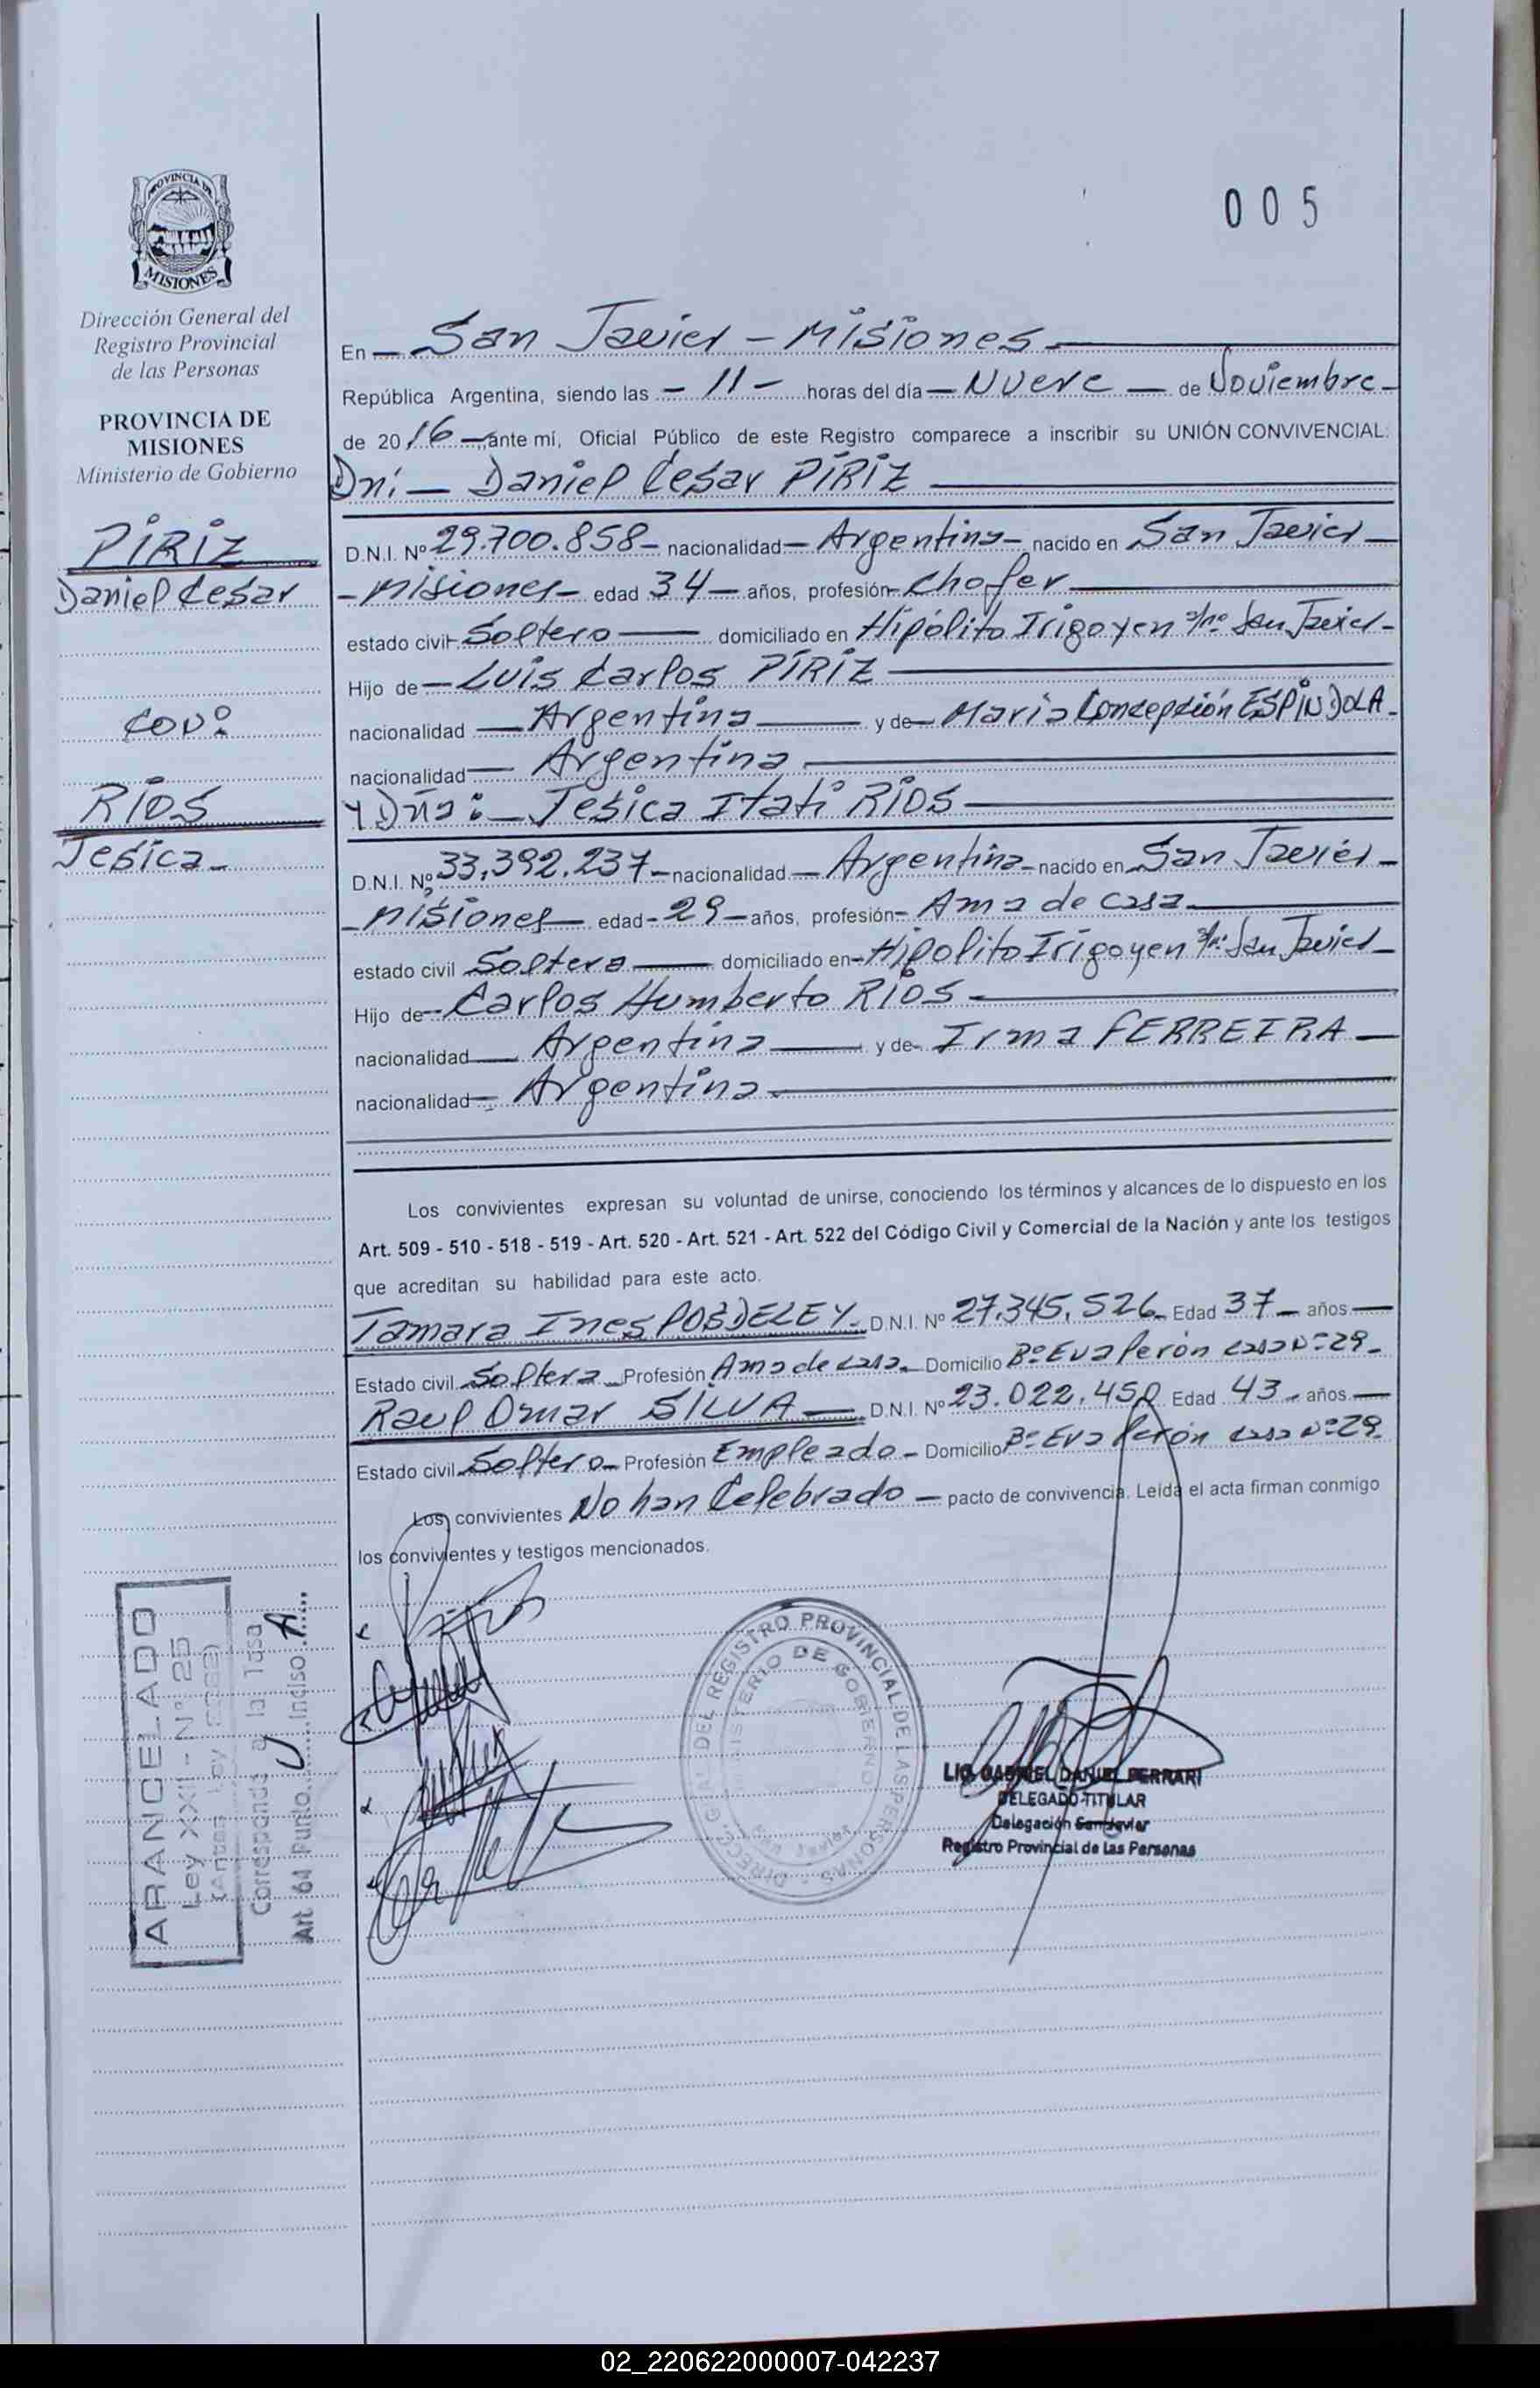 005
PROVINCIA DE
MISIONES
Dirección General del
Registro Provincial
de las Personas
PROVINCIA DE
MISIONES
Ministerio de Gobierno
PÍRIZ
Daniel Cesar
con:
RÍOS
Jesica
En San Javier - Misiones
República Argentina, siendo las - 11 - horas del día - Nueve - de Noviembre
de 2016 ante mí, Oficial Público de este Registro comparece a inscribir su UNIÓN CONVIVENCIAL:
Dn: - Daniel Cesar PÍRIZ
D.N.I. Nº 29.700.858 - nacionalidad - Argentina - nacido en San Javier -
- Misiones - edad 34 - años, profesión - Chofer
estado civil - Soltero - domiciliado en Hipólito Irigoyen s/nº San Javier -
Hijo de - Luis Carlos PÍRIZ
nacionalidad - Argentina - y de - Maria Concepción ESPINDOLA -
nacionalidad - Argentina
Y Dña: - Jesica Itatí RÍOS
D.N.I. Nº 33.392.237 - nacionalidad - Argentina - nacido en San Javier -
- Misiones - edad - 29 - años, profesión - Ama de casa
estado civil Soltera - domiciliado en - Hipolito Irigoyen s/nº San Javier -
Hijo de - Carlos Humberto RÍOS -
nacionalidad - Argentina - y de Irma FERREIRA -
nacionalidad - Argentina -
Los convivientes expresan su voluntad de unirse, conociendo los términos y alcances de lo dispuesto en los
Art. 509 - 510 - 518 - 519 - Art. 520 - Art. 521 - Art. 522 del Código Civil y Comercial de la Nación y ante los testigos
que acreditan su habilidad para este acto.
Tamara Ines POSDELEY - D.N.I. Nº 27.345.526 Edad 37 - años
Estado civil Soltera - Profesión Ama de casa - Domicilio Bº Eva Perón casa Nº 29 -
Raul Omar SILVA - D.N.I. Nº 23.022.450 Edad 43 - años
Estado civil Soltero - Profesión Empleado - Domicilio Bº Eva Perón casa Nº 29 -
Los convivientes No han Celebrado - pacto de convivencia. Leída el acta firman conmigo
los convivientes y testigos mencionados.
ARANCELADO
Ley XXII - Nº 25
Corresponde a la tasa
Art. 64 Punto J Inciso A
DIRECC. GRAL. DEL REGISTRO PROVINCIAL DE LAS PERSONAS
MINISTERIO DE GOBIERNO
LIC. GABRIEL DANIEL FERRARI
DELEGADO TITULAR
Delegación San Javier
Registro Provincial de las Personas
02_220622000007-042237